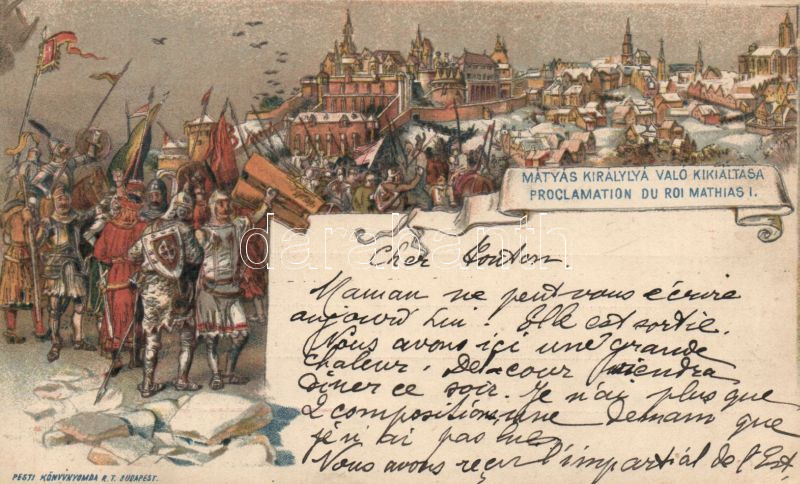 MÁTYÁS KIRÁLYLYÁ VALÓ KIKIÁLTÁSA
PROCLAMATION DU ROI MATHIAS I.
darabanth
Cher Tonton.
Maman ne peut vous écrire
aujourd'hui. Elle est sortie.
Nous avons ici une grande
chaleur. Delacour viendra
dîner ce soir. Je n'ai plus que
2 compositions, une demain que
je n'ai pas
Nous avons reçu l'impartial de l'Est.
PESTI KÖNYVNYOMDA R.T. BUDAPEST.